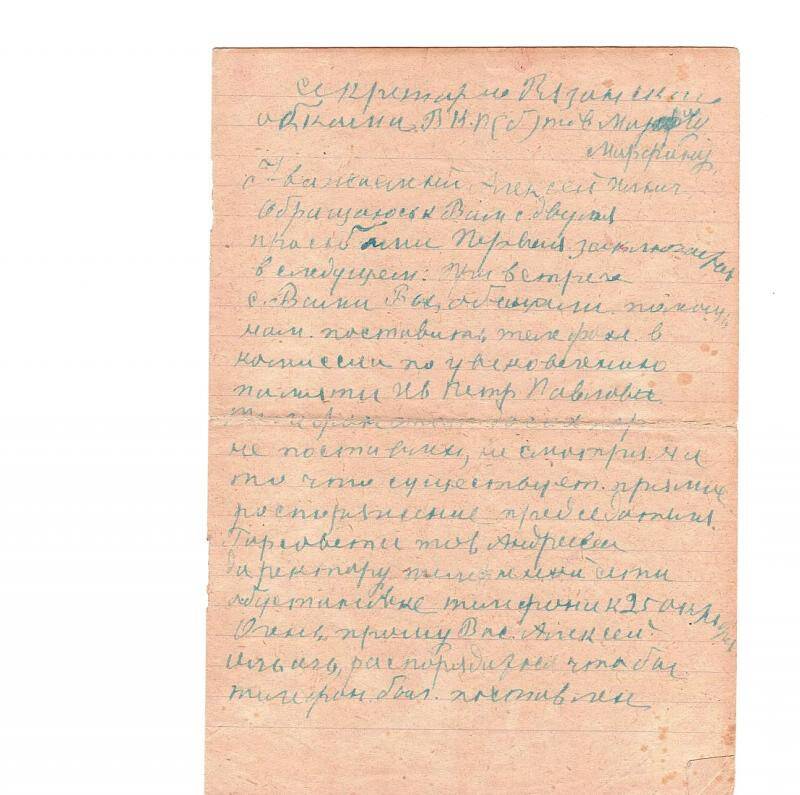 секретарю Рязанского
обкома ВКП(б) тов Мар
Марфину
Уважаемый Алексей Ильич
Обращаюсь к Вам с двумя
просьбами Первая заключается
в следущем: При встрече
с Вами Вы, обещали помочь
нам поставить телефон в
комиссии по увековечению
памяти Ив Петр Павлова.
Телефон до сих пор
не поставили, не смотря на
то что существует прямое
роспоряжение председателя
Горсовета тов Андреева
директору телефонной сети
об установке телефона к 25 октября
Очень прошу Вас Алексей
Ильич, распорядиться что бы
телефон был поставлен